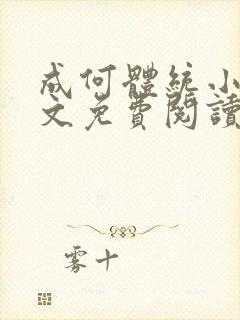 成何體統小
文免費閱讀
雾十